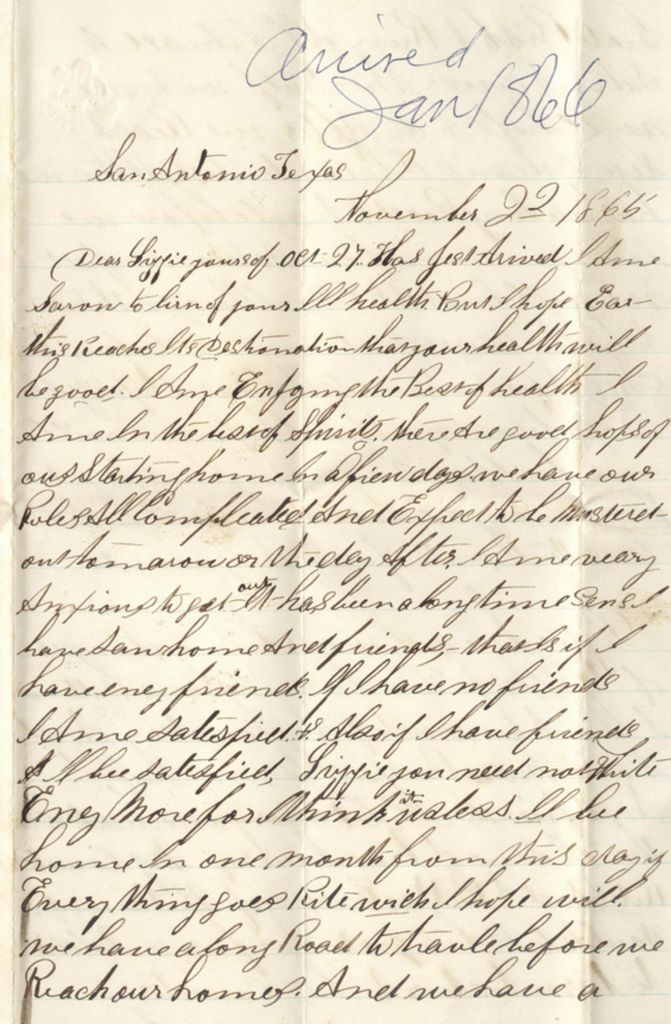 Arived
Jan 1866
San Antonio Texas
November 22 1865
Dear Lizzie yours of Oct 27. Has Jest Arived I Ame
Sarow to lirn of your Ill health. But I hope Ear
this Reaches Its Destionation that your health will
be good. I Ame Enjoying the Best of health I
Ame In the best of Spirits. there Are good hops of
ous Starting home In A fiew days. we have our
Roles All Complicated And Expect to be Mustered
out tomarow or the day After. I Ame veary
Anxious to get out It has been a long time Sens I
have saw home And friends, - that Is if I
have eney friends. If I have no friends
I Ame satesfied. & Also if I have friends
I'll bee satesfied, Lizzie you need not Write
Eney More for I think it usless. Il bee
home In one month from this day if
Every thing goes Rite wich I hope will.
we have a long Road to travle before we
Reach our homes. And we have a